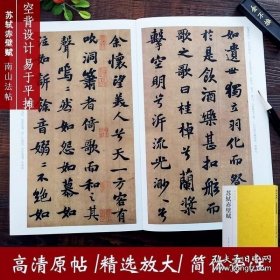 空背设计 易于平摊
苏轼赤壁赋
南山法帖
如遺世獨立羽化而登
於是飲酒樂甚扣舷而
歌之歌曰桂棹兮蘭槳
擊空明兮泝流光渺
余懷望美人兮天一方客有
吹洞簫者倚歌而和之其
聲嗚嗚然如怨如慕
如訴餘音嫋嫋不絕如
苏轼赤壁赋
高清原帖 /精选放大/ 简体旁注